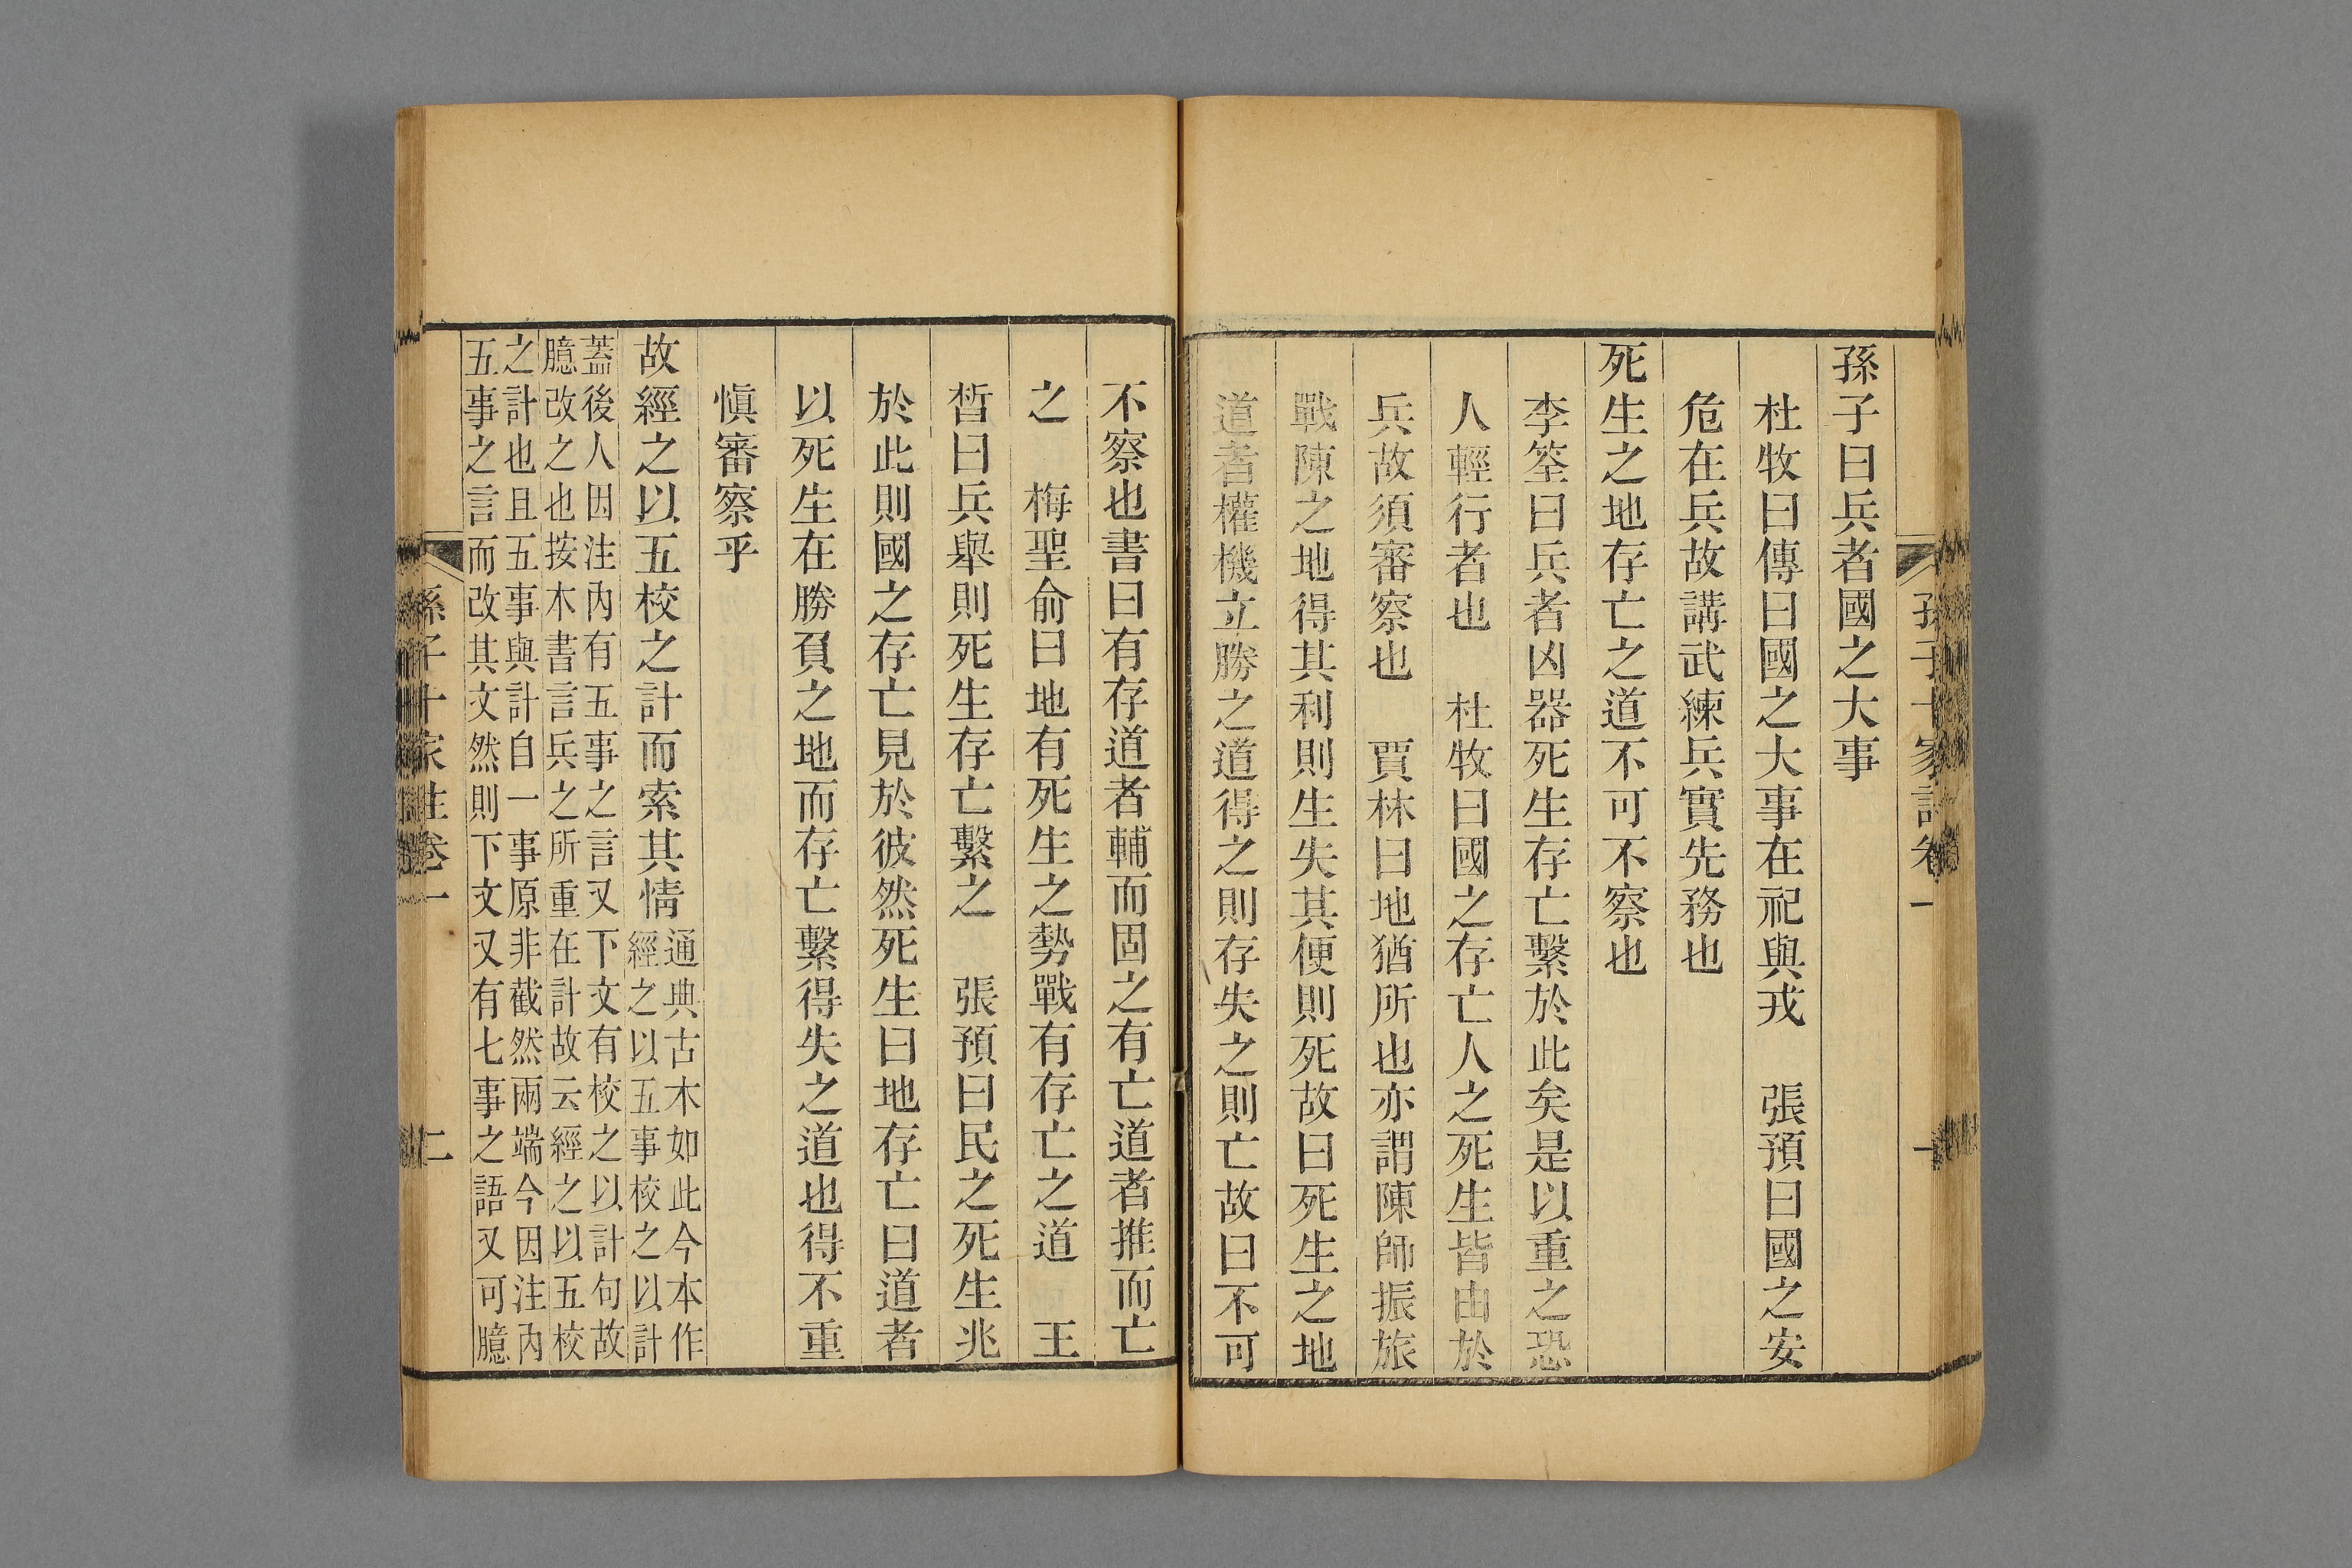 孫子十家註卷一 一
孫子曰兵者國之大事
杜牧曰傳曰國之大事在祀與戎 張預曰國之安
危在兵故講武練兵實先務也
死生之地存亡之道不可不察也
李筌曰兵者凶器死生存亡繫於此矣是以重之恐
人輕行者也 杜牧曰國之存亡人之死生皆由於
兵故須審察也 賈林曰地猶所也亦謂陳師振旅
戰陳之地得其利則生失其便則死故曰死生之地
道者權機立勝之道得之則存失之則亡故曰不可
不察也書曰有存道者輔而固之有亡道者推而亡
之 梅聖俞曰地有死生之勢戰有存亡之道 王
晳曰兵舉則死生存亡繫之 張預曰民之死生兆
於此則國之存亡見於彼然死生曰地存亡曰道者
以死生在勝負之地而存亡繫得失之道也得不重
愼審察乎
故經之以五校之計而索其情
通典古本如此今本作
經之以五事校之以計
蓋後人因注內有五事之言又下文有校之以計句故
臆改之也按本書言兵之所重在計故云經之以五校
之計也且五事與計自一事原非截然兩端今因注內
五事之言而改其文然則下文又有七事之語又可臆
孫子十家註卷一 二